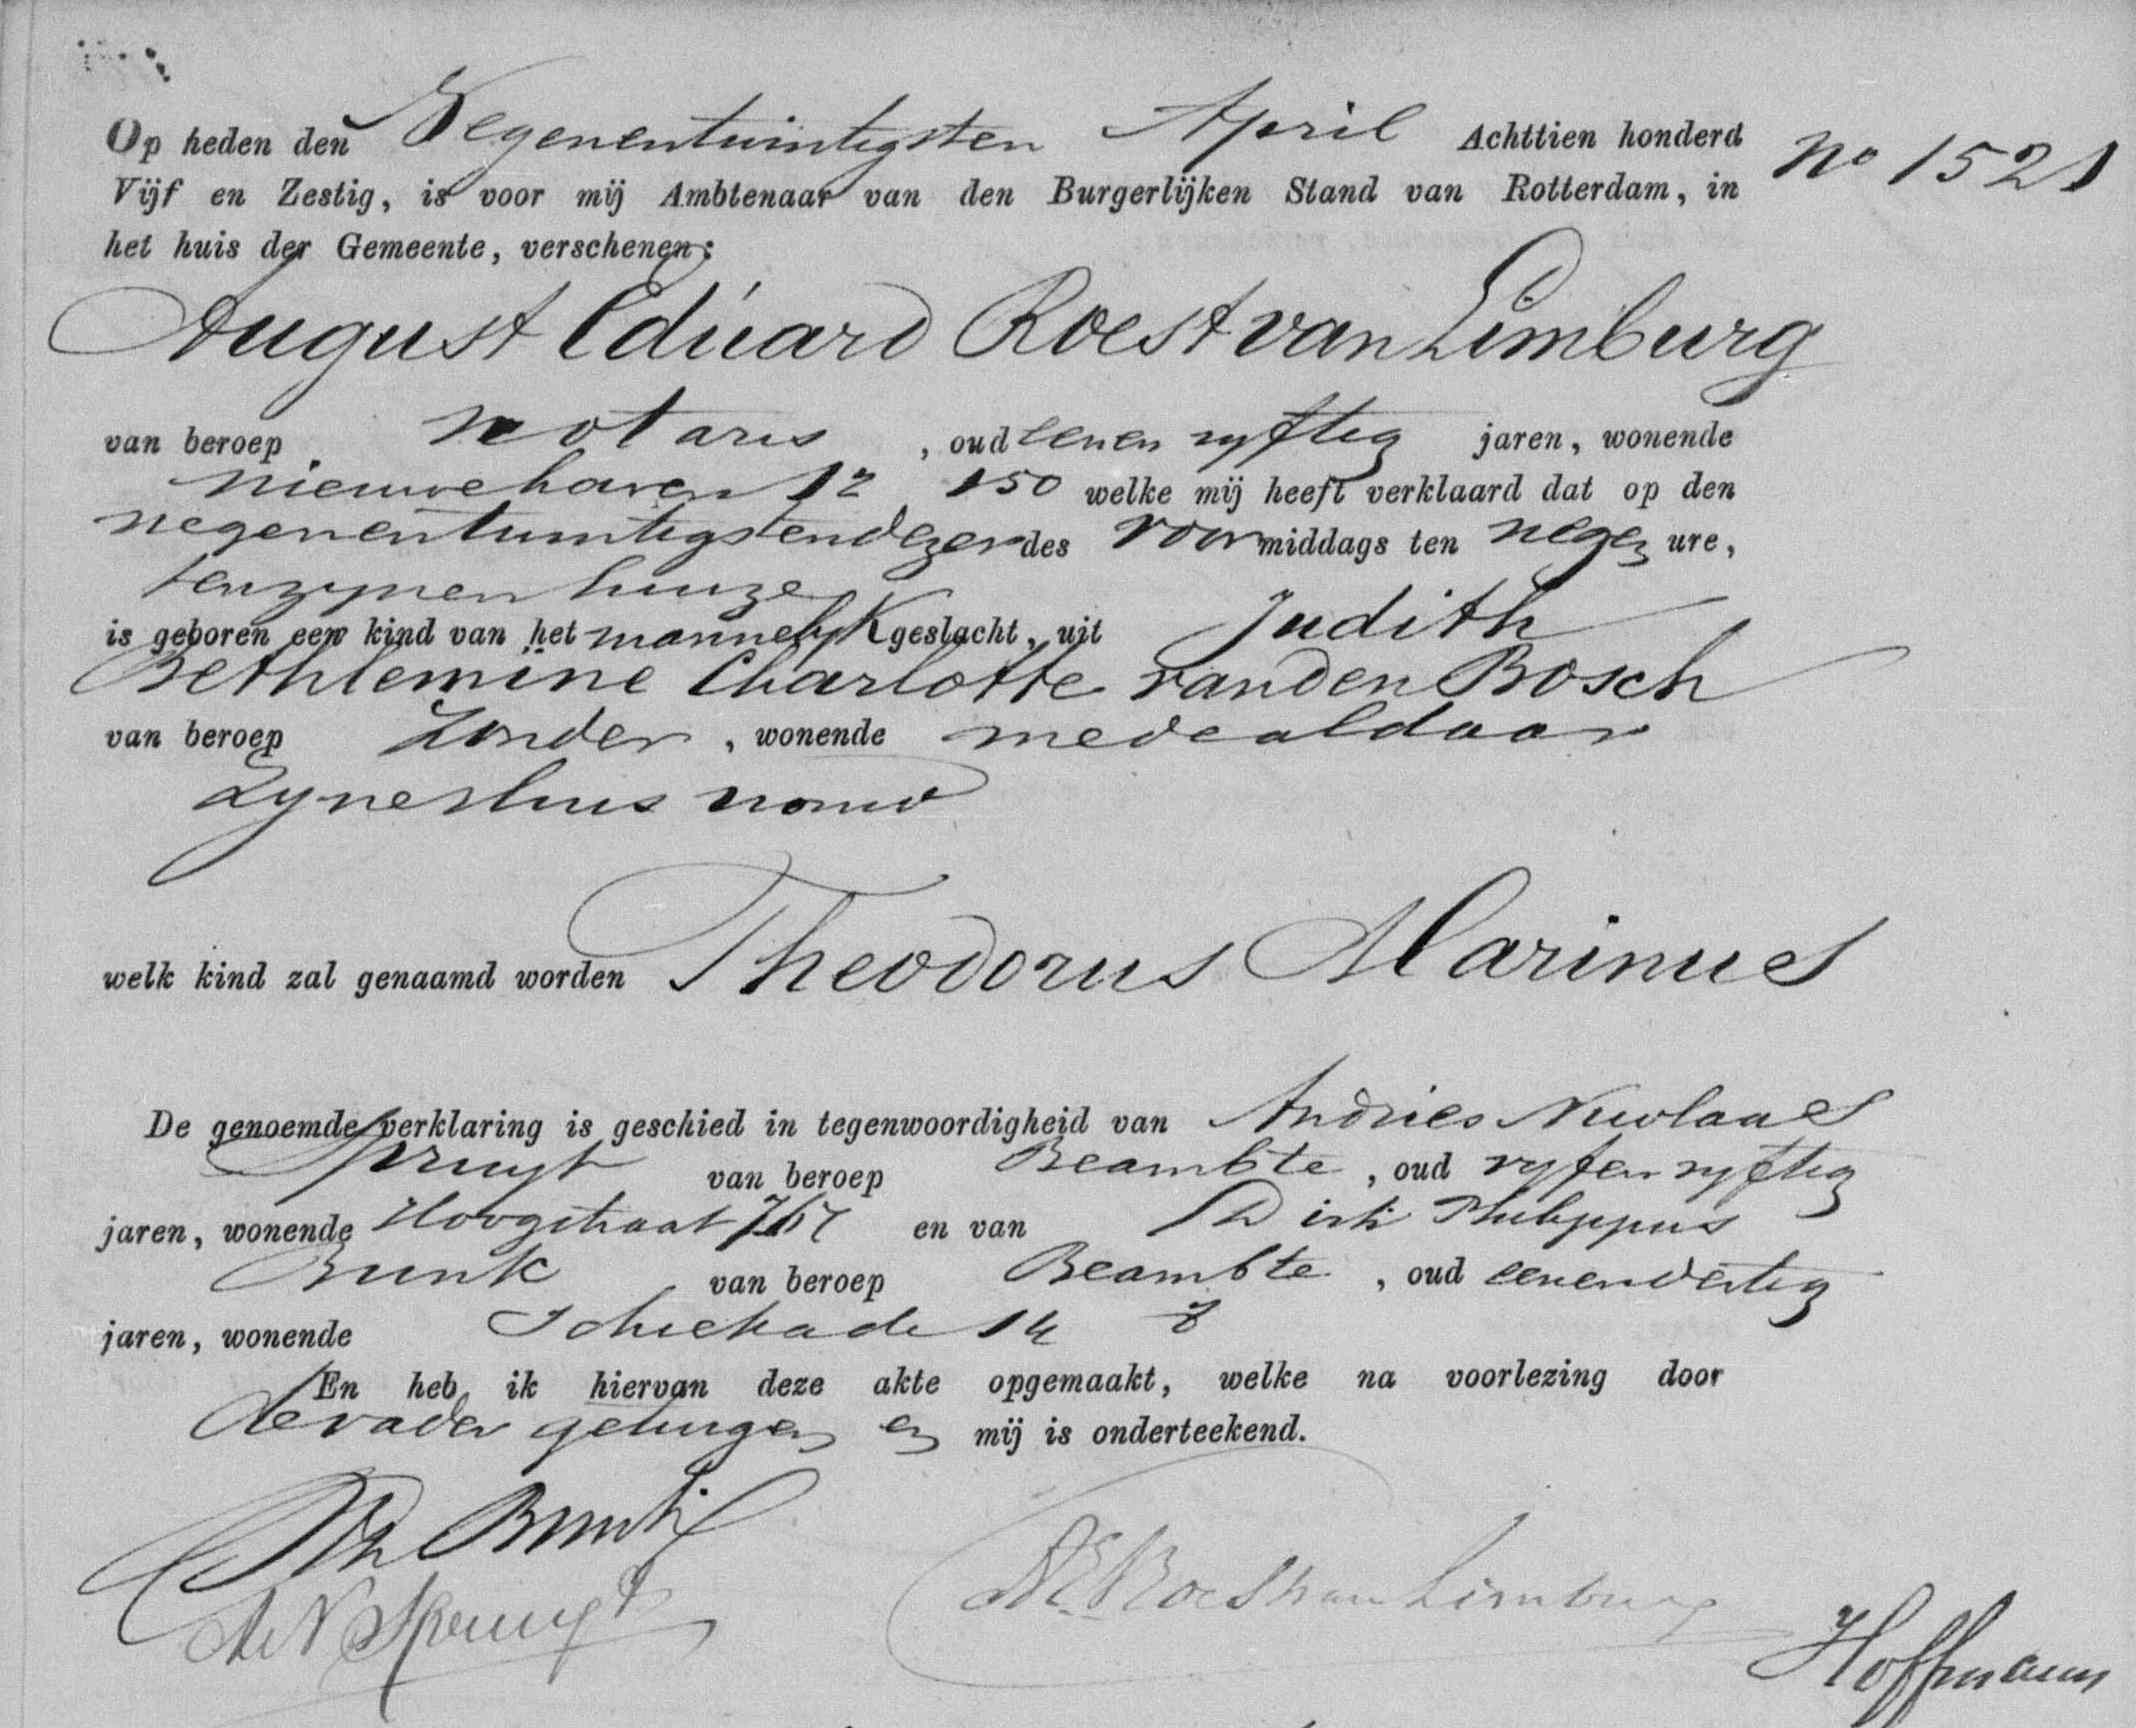 Op heden den Negenentwintigsten April Achttien honderd No 1521
Vijf en Zestig, is voor mij Ambtenaar van den Burgerlijken Stand van Rotterdam, in
het huis der Gemeente, verschenen:
August Eduard Roest van Limburg
van beroep notaris, oud eenen vyftig jaren, wonende
nieuwehaven 12 150 welke mij heeft verklaard dat op den
negenentwintigsten dezer des voormiddags ten negen ure,
tenzynen huize
is geboren een kind van het mannelyk geslacht, uit Judith
Bethlemine Charlotte van den Bosch
van beroep zonder, wonende mede aldaar
zyne huisvrouw
welk kind zal genaamd worden Theodorus Marinus
De genoemde verklaring is geschied in tegenwoordigheid van Andries Nicolaas
Spruyt van beroep Beambte, oud vyfen vyftig
jaren, wonende Hoogstraat en van Dirk Philippus
Bunk van beroep Beambte, oud eenendertig
jaren, wonende Schiekade 14
En heb ik hiervan deze akte opgemaakt, welke na voorlezing door
de vader getuigen en mij is onderteekend.
Bunk
A N Spruyt AE Roest van Limburg
Hoffmann